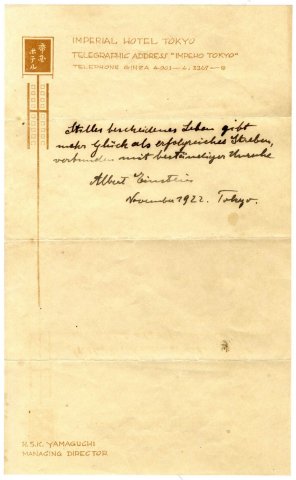 帝国
ホテル
IMPERIAL HOTEL TOKYO
TELEGRAPHIC ADDRESS "IMPEHO TOKYO"
TELEPHONE GINZA
Stilles bescheidenes Leben gibt
mehr Glück als erfolgreiches Streben,
verbunden mit beständiger Unruhe
Albert Einstein
November 1922. Tokyo.
H.S.K. YAMAGUCHI
MANAGING DIRECTOR